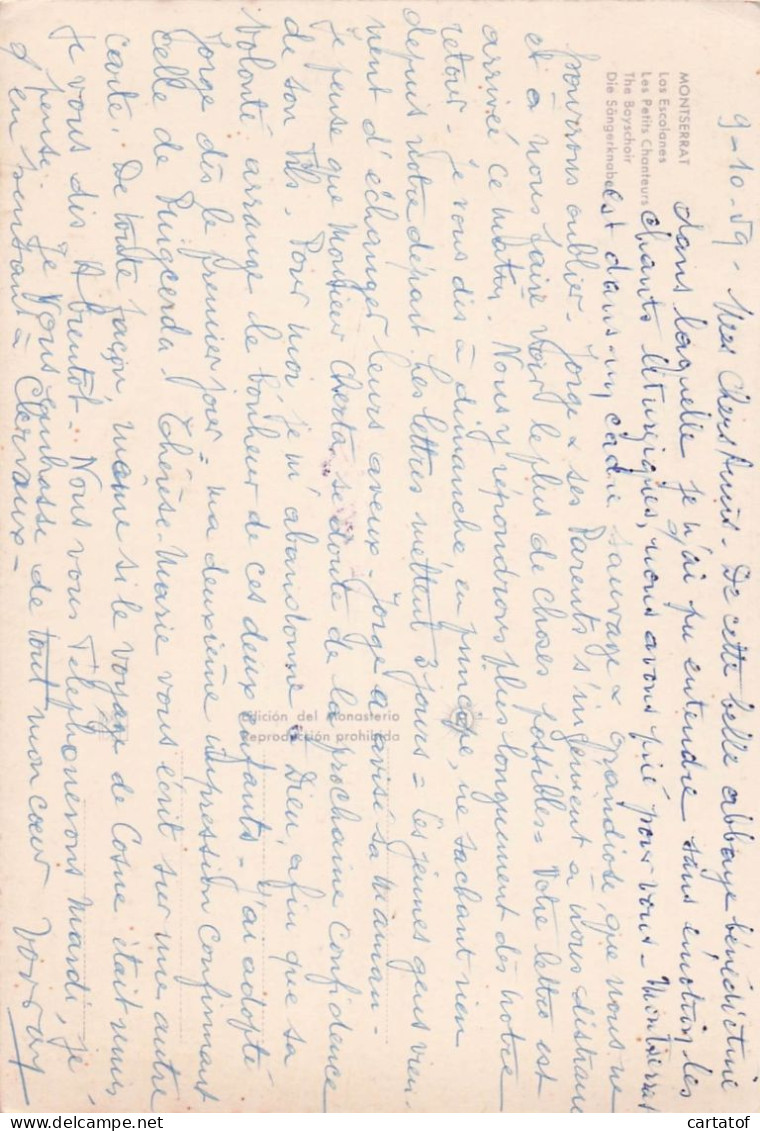 MONTSERRAT
Los Escolanes
Les Petits Chanteurs
The Boyschoir
Die Sängerknaben
9-10-59 - Mes Chers Amis - De cette belle abbaye bénédictine
dans laquelle je n'ai pu entendre sans émotion les
chants liturgiques, nous avons prié pour vous - Montserrat
est dans un cadre sauvage & grandiose, que nous ne
pouvons oublier. Jorge & ses Parents s'ingénient à nous distraire
et à nous faire voir le plus de choses possibles = Votre lettre est
arrivée ce matin. Nous y répondrons plus longuement dès notre
retour - je vous dis à dimanche, en principe, ne sachant rien
depuis notre départ. Les lettres mettent 3 jours = Les jeunes gens vien-
nent d'échanger leurs aveux - Jorge a avisé sa maman -
je pense que Monsieur Cherta se doute de la prochaine confidence
de son Fils. Pour moi, je m'abandonne à Dieu, afin que sa
Volonté arrange le bonheur de ces deux enfants - J'ai adopté
Jorge dès le premier jour = ma deuxième impression confirmant
celle de Puigcerda ! Thérèse-Marie vous écrit sur une autre
carte. De toute façon, même si le voyage de Cosne était remis
je vous dis A bientôt - Nous vous Téléphonerons mardi, je
pense. Je vous embrasse de tout mon cœur
d'en pensant à Clervaux -
Edición del Monasterio
Reproducción prohibida